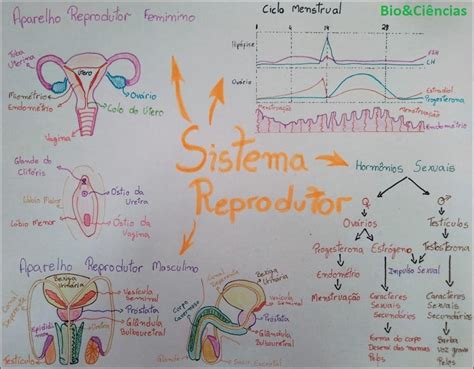 Aparelho Reprodutor Feminino
Tuba
Uterina
Útero
Ovário
Miométrio
Endométrio
Colo do Útero
Vagina
Glande do
Clitóris
Lábio Maior
Lábio Menor
Óstio da
Uretra
Óstio da
Vagina
Aparelho Reprodutor Masculino
Bexiga
Urinária
Canal
Deferente
Vesícula
Seminal
Próstata
Glândula
Bulbouretral
Epidídimo
Testículo
Corpo
Cavernoso
Bexiga
Urinária
Vesícula
Seminal
Próstata
Glândula
Bulbouretral
Sistema
Reprodutor
Ciclo Menstrual
Bio&Ciências
1
4
14
28
Hipófise
FSH
LH
Ovário
Estradiol
Progesterona
Menstruação
Menstruação
Endométrio
Hormônios Sexuais
♀
♂
Ovários
Testículos
Progesterona
Estrógeno
Testosterona
Endométrio
Impulso Sexual
Menstruação
Caracteres
Sexuais
Secundários
Caracteres
Sexuais
Secundários
Forma do corpo
Desenv. das mamas
Pelos
Barba
Voz grave
Pelos